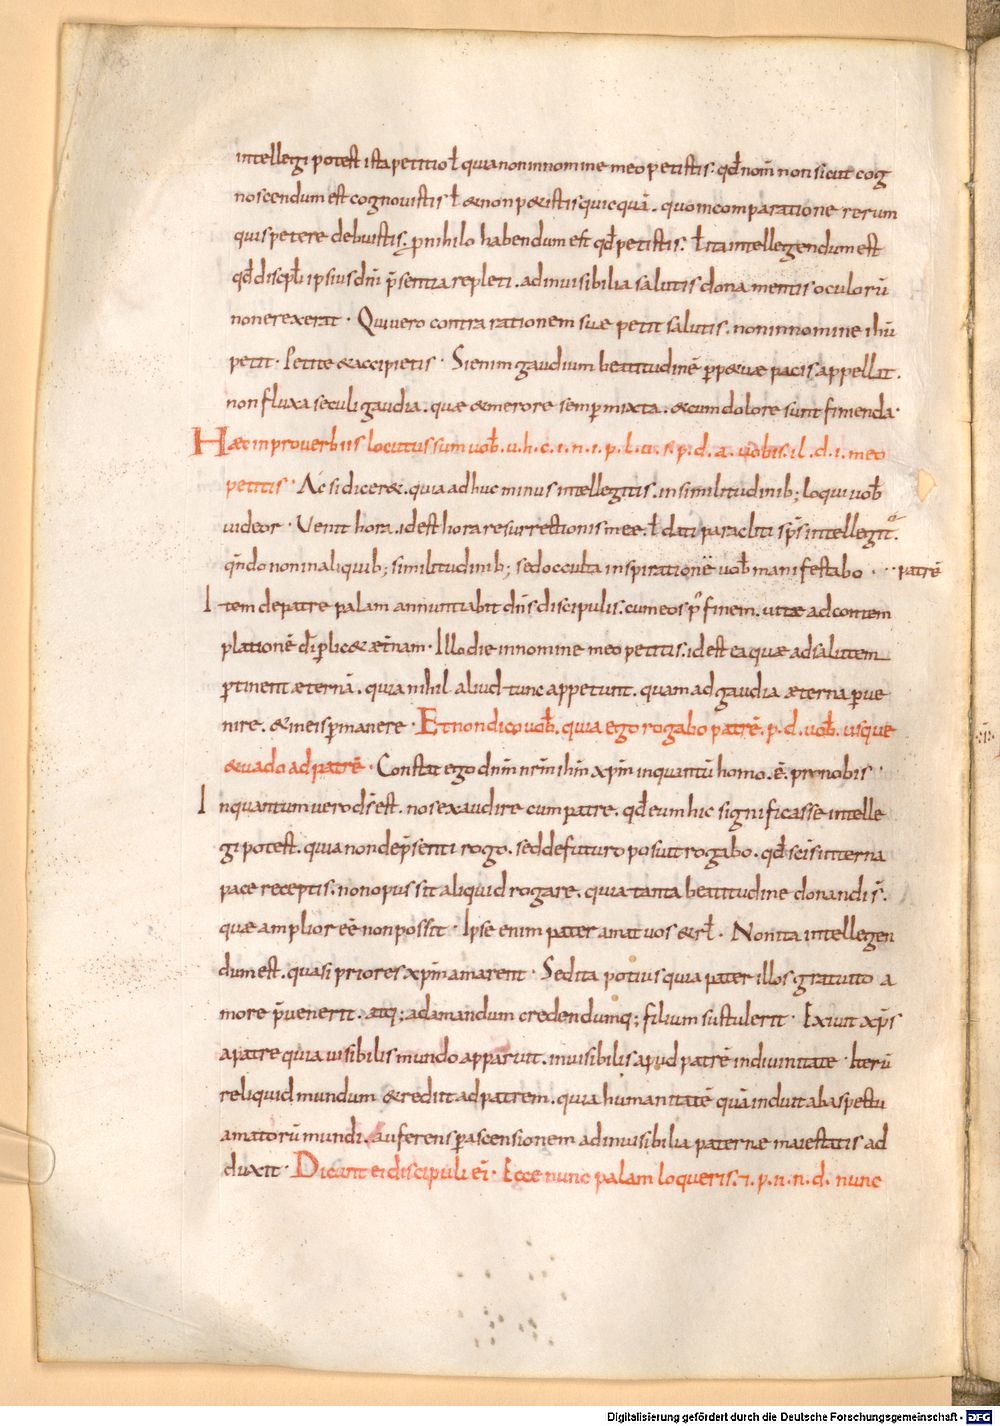 intellegi potest ista petitio ł quia non in nomine meo petistis· qđ nom̄ non sicut cog
noscendum est cognovistis ł & non p&istis quicquā· quo in comparatione rerum
quis petere debuistis· p nihilo habendum est qđ petistis· ł ita intellegendum est
qđ discipłi ipsius dn̄i p̄sentia repleti· ad invisibilia salutis dona mentis oculorū
non erexerat· Qui vero contra rationem suæ petit salutis· non in nomine ihū
petit· Petite & accipietis· Si enim gaudium beatitudinē pp&uæ pacis appellat·
non fluxa seculi gaudia· quæ & merore semp mixta· & cum dolore sunt finienda·
Hæc in proverbiis locutus sum vob̄· v·h·c·i·n·i·p·l·v·s·p·d·a· vobis· il·d·i· meo
petitis· Ac si dicer&· quia adhuc minus intellegitis· in similitudinib; loqui vob̄
videor· Venit hora· id est hora resurrectionis meę· ł dati paracliti sps̄ intellegit̄·
qn̄do non in aliquib; similitudinib; sed occulta inspirationē vob̄ manifestabo··· patrē
Item de patre palam annuntiabit dn̄s discipulis· cum eos p̄ finem· vitæ ad contem
plationē đi p̱lic& æt̄nam· Illo die in nomine meo petitis· id est ea quæ ad salutem
p̱tinent æternā· quia nihil aliud tunc appetunt· quam ad gaudia æterna p̱ve
nire· & in eis p̱manere· Et non dico vob̄· quia ego rogabo patrē· p·d·vob̄· usque
& vado ad patrē· Constat ego dn̄m nr̄m ihm̄ xp̄m in quantū homo·ē· pro nobis·
In quantum vero dš est· nos exaudire cum patre· qđ eum hic significasse intelle
gi potest· quia non de p̄senti rogo· sed de futuro posuit rogabo· qđ scīs in terna
pace receptis· non opus sit aliquid rogare· quia tanta beatitudine donandi s̄·
quæ amplior ēē non possit· Ipse enim pater amat vos & rł· Non ita intellegen
dum est· quasi priores xp̄m amarent· Sed ita potius quia pater illos gratuito a
more p̄venerit· atq; ad amandum credendumq; filium sustulerit· Exivit xp̄s
a patre quia visibilis mundo apparuit· invisibilis apud patrē in divinitate· Iterū
reliquid mundum & rediit ad patrem· quia humanitatē quā induit ab aspectu
amatorū mundi· auferens p̱ ascensionem ad invisibilia paternæ maiestatis ad
duxit· Dicunt ei discipuli ei̅· Ecce nunc palam loqueris·⁊·p·n·n·d· nunc
Digitalisierung gefördert durch die Deutsche Forschungsgemeinschaft - DFG